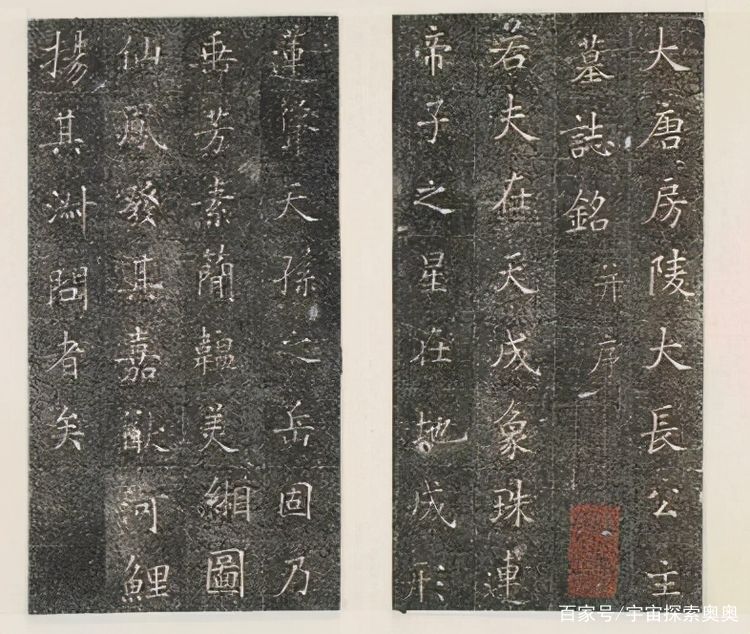 大唐房陵大長公主
墓誌銘并序
若夫在天成象珠連
帝子之星在地成形
蓮聳天孫之岳固乃
垂芳素簡韞美緗圖
仙鳳發其嘉猷河鯉
揚其淵問者矣
百家号/宇宙探索奥奥